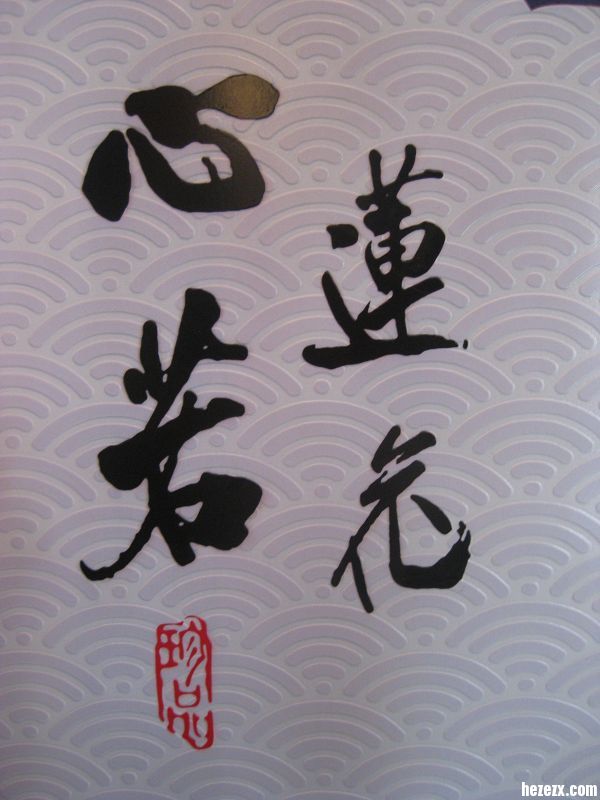 心若
蓮花
珍品
hezezx.com